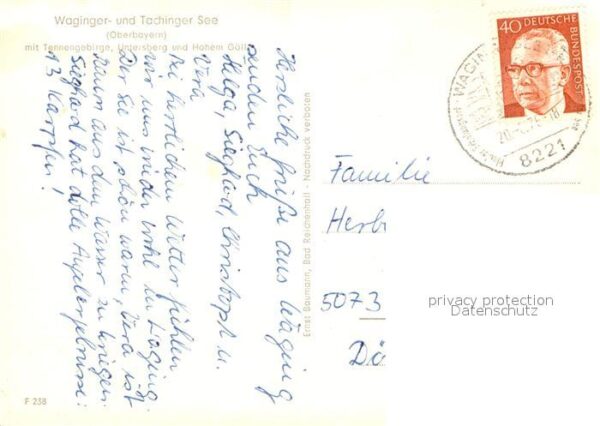 Waginger- und Tachinger See
(Oberbayern)
mit Tennengebirge, Untersberg und Hohem Göll
Herzliche Grüße aus Waging
senden Euch
Helga, Sieghard, Christoph u.
Vera
Bei herrlichem Wetter fühlen
wir uns wieder wohl in Waging.
Der See ist schön warm, Vera ist
kaum aus dem Wasser zu kriegen.
Sieghard hat tolle Angelergebnisse:
13 Karpfen!
Ernst Baumann, Bad Reichenhall - Nachdruck verboten
F 238
40 DEUTSCHE
BUNDESPOST
WAGING
8221
Familie
Herb
5073
privacy protection
Datenschutz